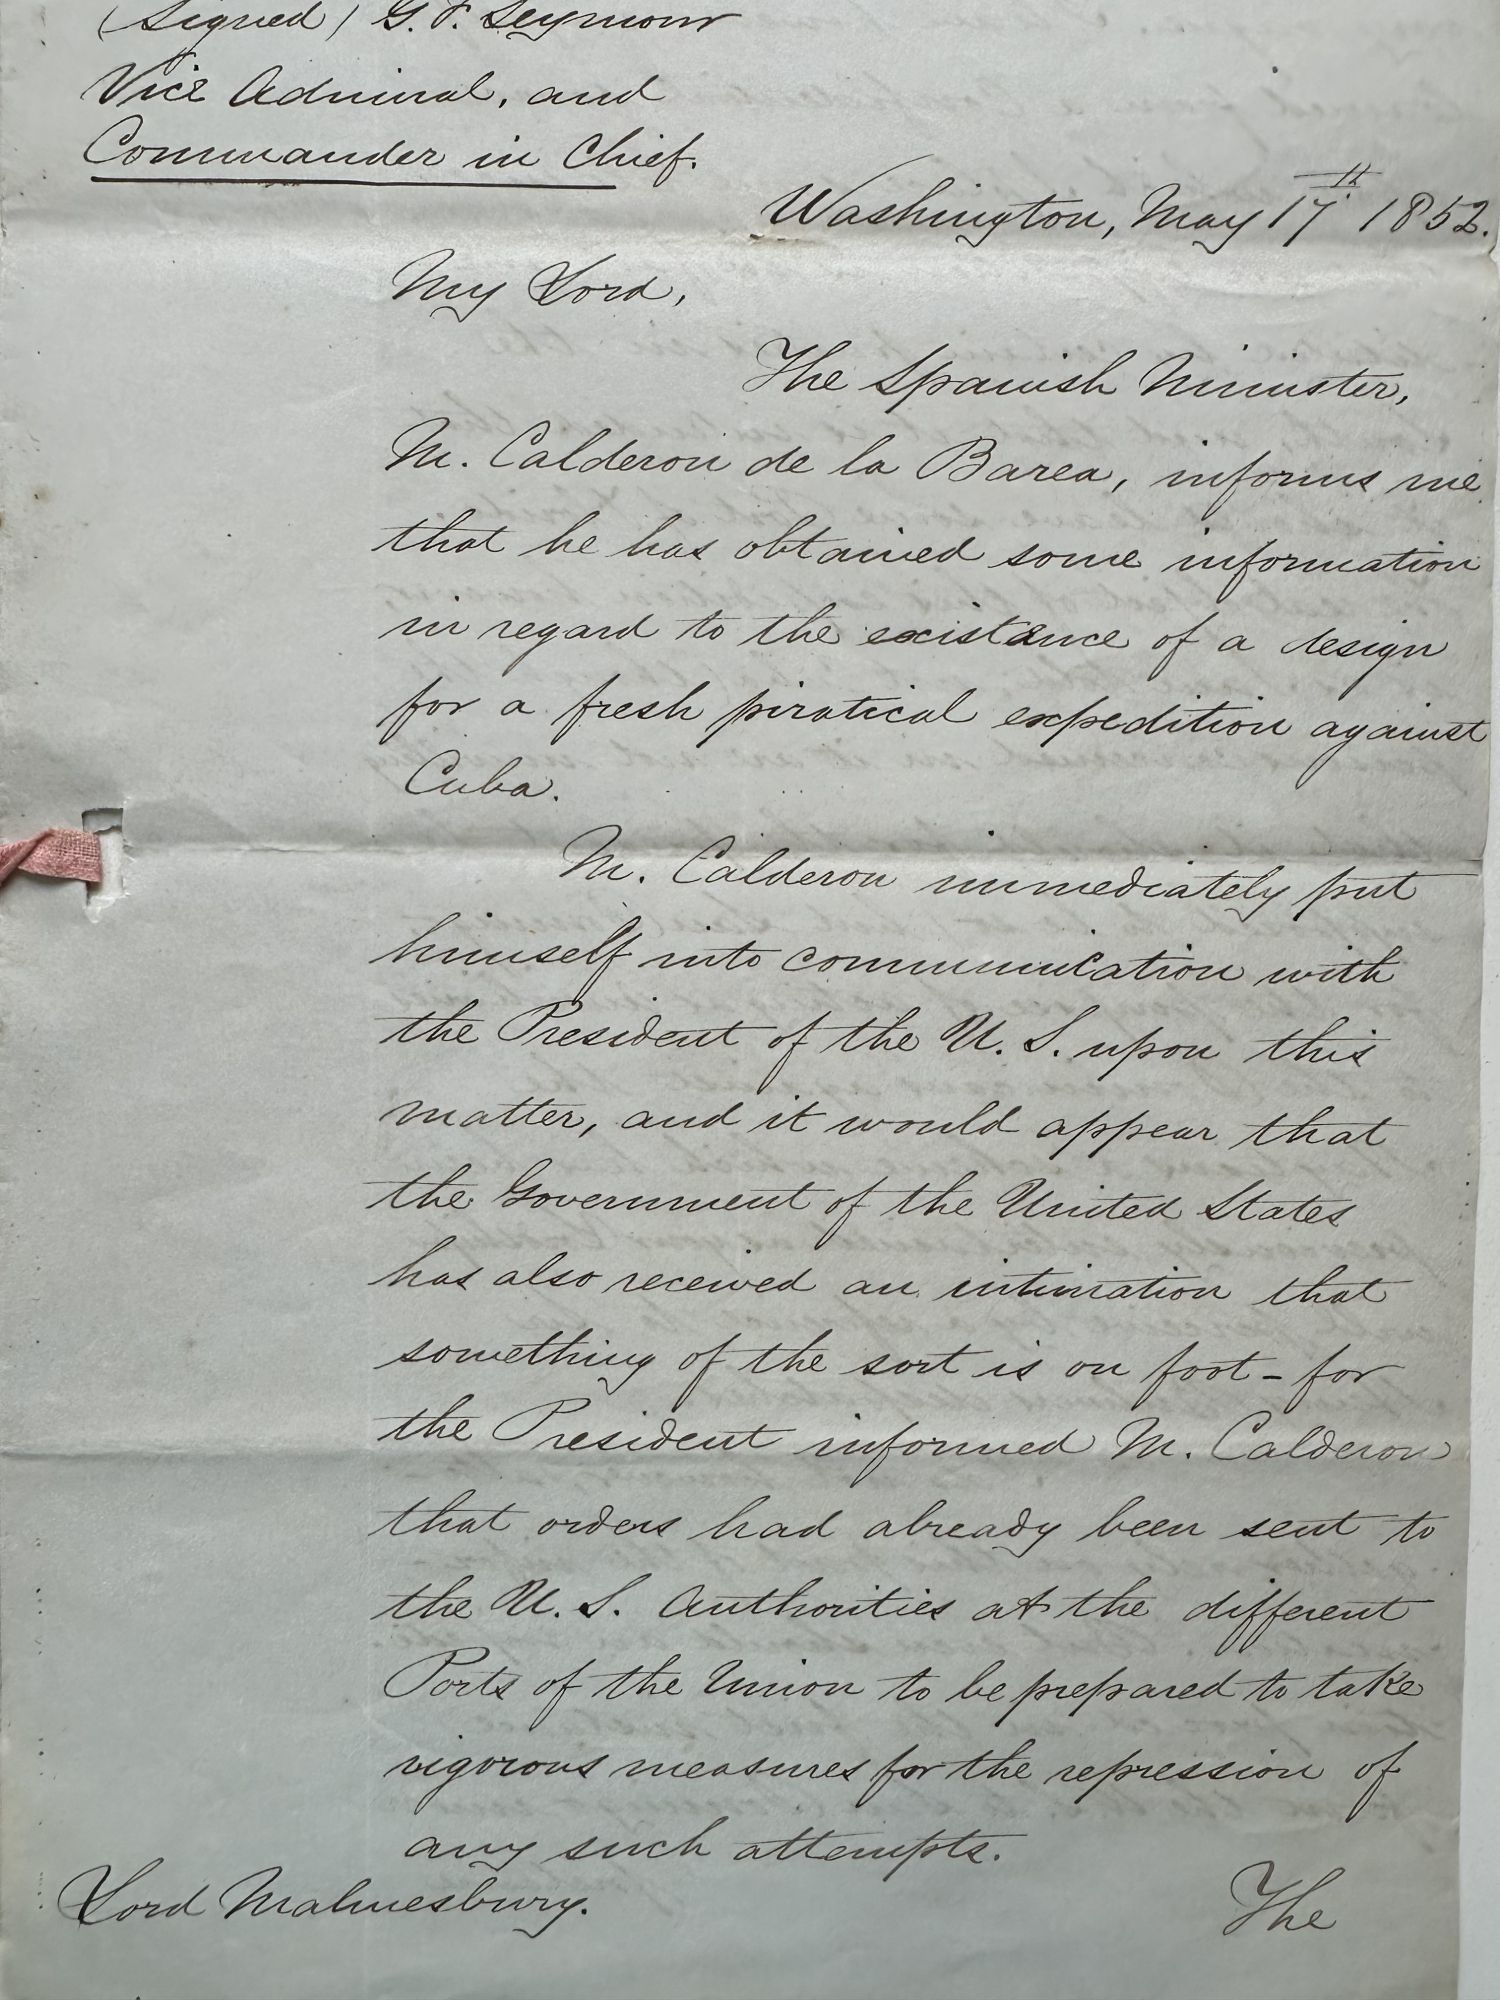 (Signed) G. F. Seymour
Vice Admiral, and
Commander in Chief.
Washington, May 17th 1852.
My Lord,
The Spanish Minister,
M. Calderon de la Barca, informs me
that he has obtained some information
in regard to the existence of a design
for a fresh piratical expedition against
Cuba.
M. Calderon immediately put
himself into communication with
the President of the U. S. upon this
matter, and it would appear that
the Government of the United States
has also received an intimation that
something of the sort is on foot - for
the President informed M. Calderon
that orders had already been sent to
the U. S. Authorities at the different
Ports of the Union to be prepared to take
vigorous measures for the repression of
any such attempts.
Lord Malmesbury.
The